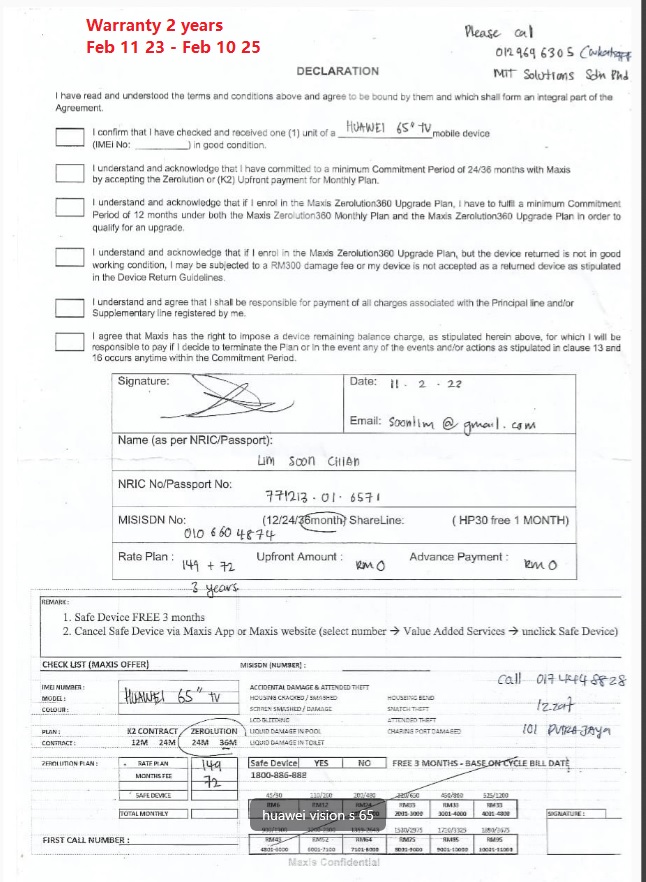 Warranty 2 years
Feb 11 23 - Feb 10 25
Please call
012 969 6305 (whatsapp
MIT Solutions Sdn Bhd
DECLARATION
I have read and understood the terms and conditions above and agree to be bound by them and which shall form an integral part of the
Agreement.
I confirm that I have checked and received one (1) unit of a HUAWEI 65" TV mobile device
(IMEI No: ________) in good condition.
I understand and acknowledge that I have committed to a minimum Commitment Period of 24/36 months with Maxis
by accepting the Zerolution or (K2) Upfront payment for Monthly Plan.
I understand and acknowledge that if I enrol in the Maxis Zerolution360 Upgrade Plan, I have to fulfil a minimum Commitment
Period of 12 months under both the Maxis Zerolution360 Monthly Plan and the Maxis Zerolution360 Upgrade Plan in order to
qualify for an upgrade.
I understand and acknowledge that if I enrol in the Maxis Zerolution360 Upgrade Plan, but the device returned is not in good
working condition, I may be subjected to a RM300 damage fee or my device is not accepted as a returned device as stipulated
in the Device Return Guidelines.
I understand and agree that I shall be responsible for payment of all charges associated with the Principal line and/or
Supplementary line registered by me.
I agree that Maxis has the right to impose a device remaining balance charge, as stipulated herein above, for which I will be
responsible to pay if I decide to terminate the Plan or in the event any of the events and/or actions as stipulated in clause 13 and
16 occurs anytime within the Commitment Period.
Signature: Date: 11 - 2 - 22
Email: Soontim @ gmail.com
Name (as per NRIC/Passport):
Lim Soon
NRIC No/Passport No:
771213 - 01 - 6571
MISISDN No: (12/24/36month) ShareLine: ( HP30 free 1 MONTH)
010 660 4874
Rate Plan : 149 + 72 Upfront Amount : RM 0 Advance Payment : RM 0
3 years
REMARK:
1. Safe Device FREE 3 months
2. Cancel Safe Device via Maxis App or Maxis website (select number → Value Added Services → unclick Safe Device)
CHECK LIST (MAXIS OFFER) MISISDN (NUMBER) :
Call 017 444 8828
Izzat
101 PUTRAJAYA
IMEI NUMBER : ACCIDENTAL DAMAGE & ATTENDED THEFT
MODEL : HUAWEI 65" TV HOUSING CRACKED / SMASHED HOUSEING BEND
COLOUR : SCREEN SMASHED / DAMAGE SNATCH THEFT
LCD BLEEDING ATTENDED THEFT
PLAN : K2 CONTRACT ZEROLUTION LIQUID DAMAGE IN POOL CHARING PORT DAMAGED
CONTRACT : 12M 24M 24M 36M LIQUID DAMAGE IN TOILET
ZEROLUTION PLAN : RATE PLAN 149 Safe Device YES NO FREE 3 MONTHS - BASE ON CYCLE BILL DATE
MONTHS FEE 72 1800-885-888
SAFE DEVICE
TOTAL MONTHLY
huawei vision s 65
SIGNATURE :
FIRST CALL NUMBER :
Maxis Confidential